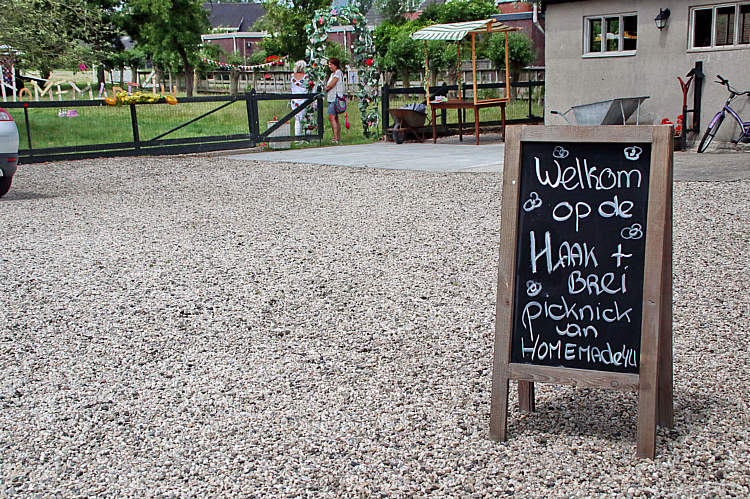 Welkom
op de
HAAK +
BREI
picknick
van
HOMEMADE4U